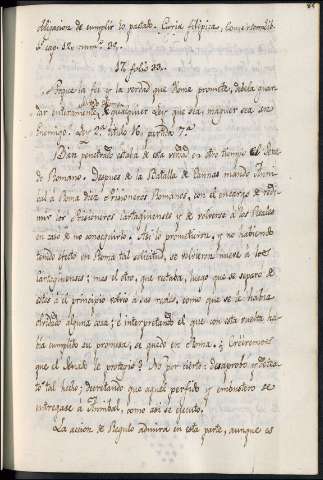 obligacion de cumplir lo pactado. Curia filipica, Comercio lib.
cap. 12, num.º 35.
17. folio 33.
Porque la fe y la verdad que home promete, debela guar-
dar enteramente, á qualquier Ley que sea, maguer sea su
enemigo. Ley 2.ª titulo 16, partida 7.ª
Bien penetrado estaba de esta verdad en otro tiempo el
de Romano. Despues de la Batalla de Cannas mandó Anni-
bal á Roma diez Prisioneros Romanos, con el encargo de redi-
mir los Prisioneros Cartagineses y de volverse á los Reales
en caso de no conseguirlo. Asi lo prometieron, y no habiendo
tenido efecto en Roma tal solicitud, se volvieron nueve á los
Cartagineses: mas el otro, que restaba, luego que se separó de
estos á el principio volvió á sus reales, como que se le habia
olvidado alguna cosa; é interpretando el que con esta vuelta ha-
bia cumplido su promesa, se quedó en Roma. ¿Creeremos
que el Senado le protegió? No por cierto: desaprobó y detes-
tó tal hecho; decretando que aquel perfido y embustero se
entregase á Annibal, como asi se executó.
La accion de Regulo admira en esta parte, aunque es